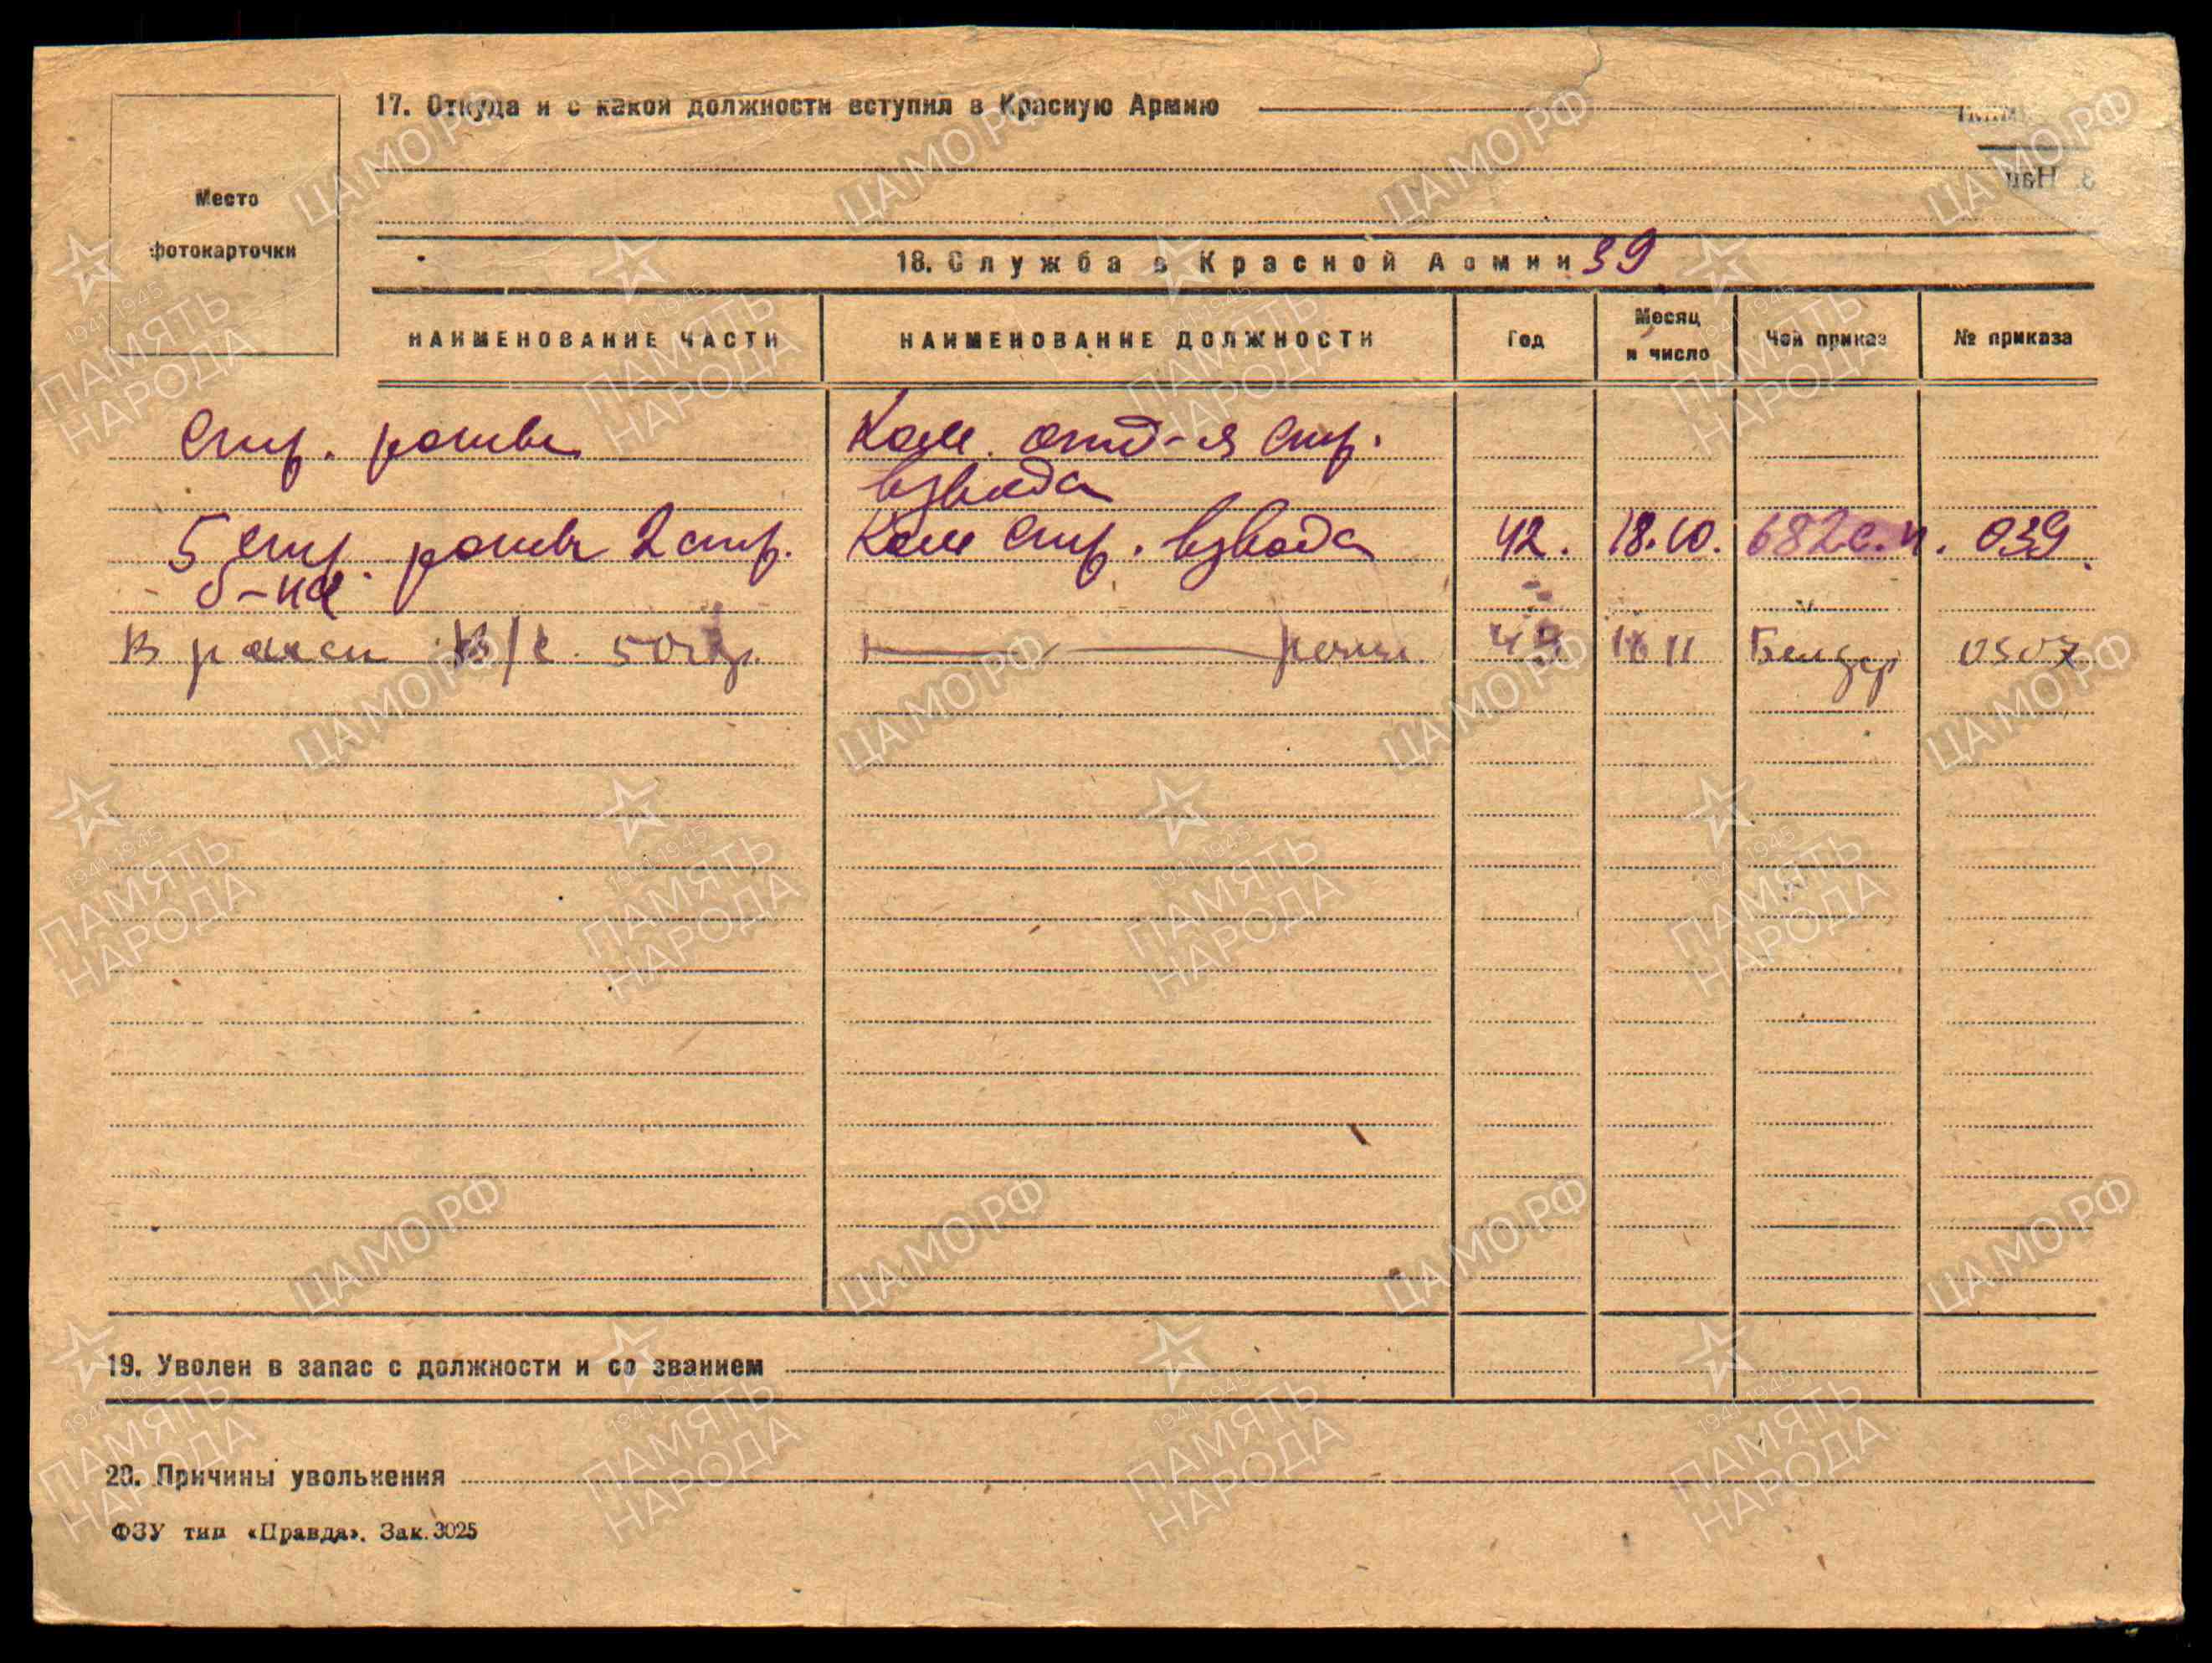 17. Откуда и с какой должности вступил в Красную Армию
Место
фотокарточки
18. Служба в Красной Армии 39
НАИМЕНОВАНИЕ ЧАСТИ НАИМЕНОВАНИЕ ДОЛЖНОСТИ Год Месяц и число Чей приказ № приказа
Стр. роты Ком. отд-я стр.
взвода
5 стр. роты 2 стр. Ком стр. взвода 42. 18.10. 682 с.п. 039
б-на
В 11
19. Уволен в запас с должности и со званием
20. Причины увольнения
ФЗУ тип «Правда». Зак. 3025
ЦАМО.РФ
1941-1945
ПАМЯТЬ
НАРОДА